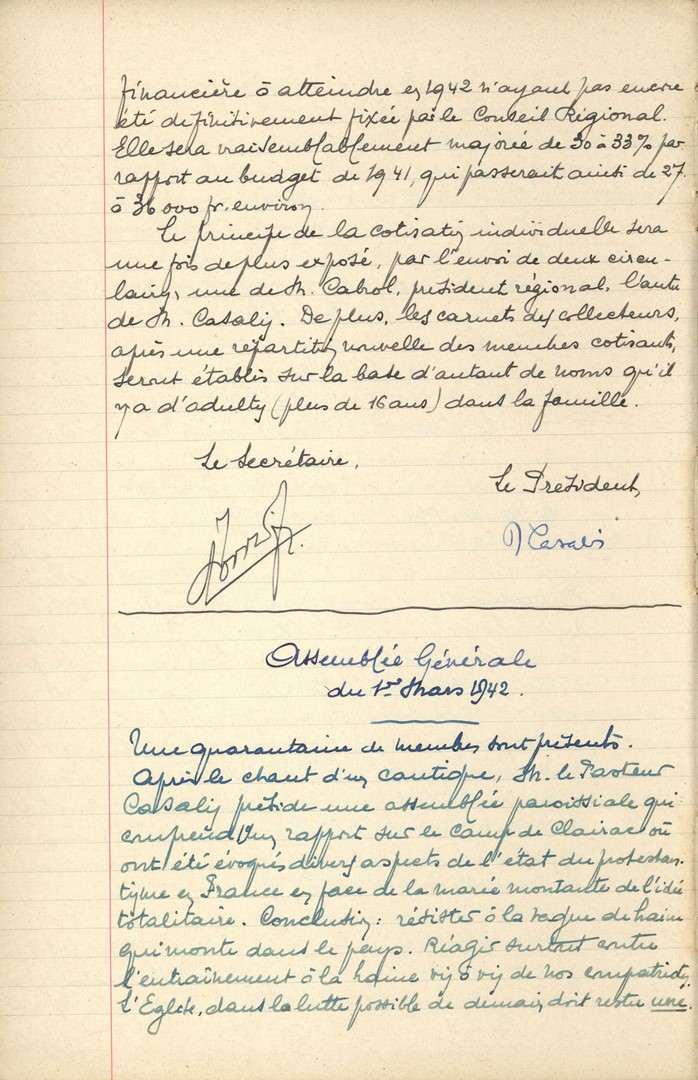 financière à atteindre en 1942 n'ayant pas encore
été définitivement fixée par le Conseil Régional.
Elle sera vraisemblablement majorée de 30 à 33% par
rapport au budget de 1941, qui passerait ainsi de 27
à 36 000 fr. environ.
Le principe de la cotisation individuelle sera
une fois de plus exposé, par l'envoi de deux circu-
laires, une de M. Cabrol, président régional, l'autre
de M. Casalis. De plus, les carnets des collecteurs,
après une répartition nouvelle des membres cotisants,
seront établis sur la base d'autant de noms qu'il
y a d'adultes (plus de 16 ans) dans la famille.
Le Secrétaire,
Le Président,
Casalis
Assemblée Générale
du 1er Mars 1942.
Une quarantaine de membres sont présents.
Après le chant d'un cantique, M. le Pasteur
Casalis préside une assemblée paroissiale qui
comprend un rapport sur le camp de Clairac où
ont été évoqués divers aspects de l'état du protestan-
tisme en France en face de la marée montante de l'idée
totalitaire. Conclusion : résister à la vague de haine
qui monte dans le pays. Réagir surtout contre
l'entraînement à la haine vis à vis de nos compatriotes.
L'Eglise, dans la lutte possible de demain, doit rester une.